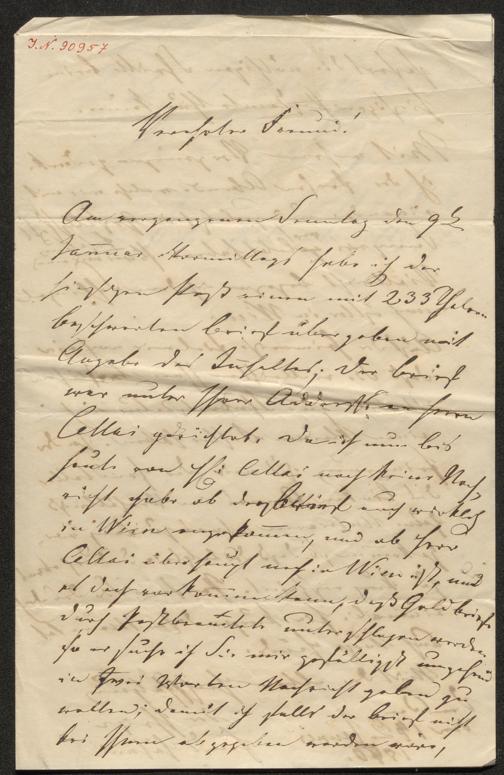 I.N. 90957
Verehrter Freund!
Am vergangenen Sonntag den 9t
Januar Vormittags habe ich der
hiesigen Post einen mit 233 Thalern
beschwerten Brief übergeben mit
Angabe des Inhaltes; der Brief
war unter Ihrer Addresse an Herrn
Cellai gerichtet. Da ich nun bis
heute von H. Cellai noch keine Nach
richt habe ob der Brief auch wirklich
in Wien angekommen, und ob Herr
Cellai überhaupt noch in Wien ist, und
es doch vorkommen kann, daß Geldbriefe
durch Postbeamte unterschlagen werden,
so ersuche ich Sie mir gefälligst umgehend
in zwei Worten Nachricht geben zu
wollen; damit ich falls der Brief nicht
bei Ihnen abgegeben worden wäre,